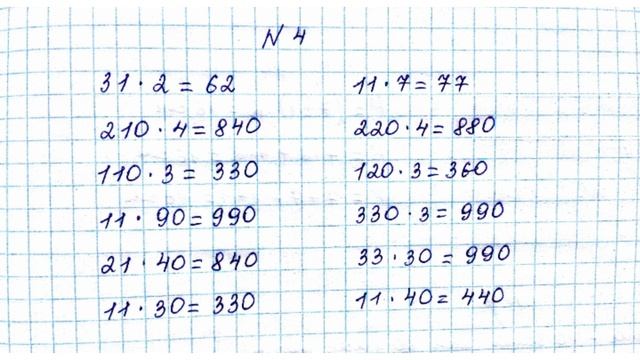 N 4
31 · 2 = 62
210 · 4 = 840
110 · 3 = 330
11 · 90 = 990
21 · 40 = 840
11 · 30 = 330
11 · 7 = 77
220 · 4 = 880
120 · 3 = 360
330 · 3 = 990
33 · 30 = 990
11 · 40 = 440